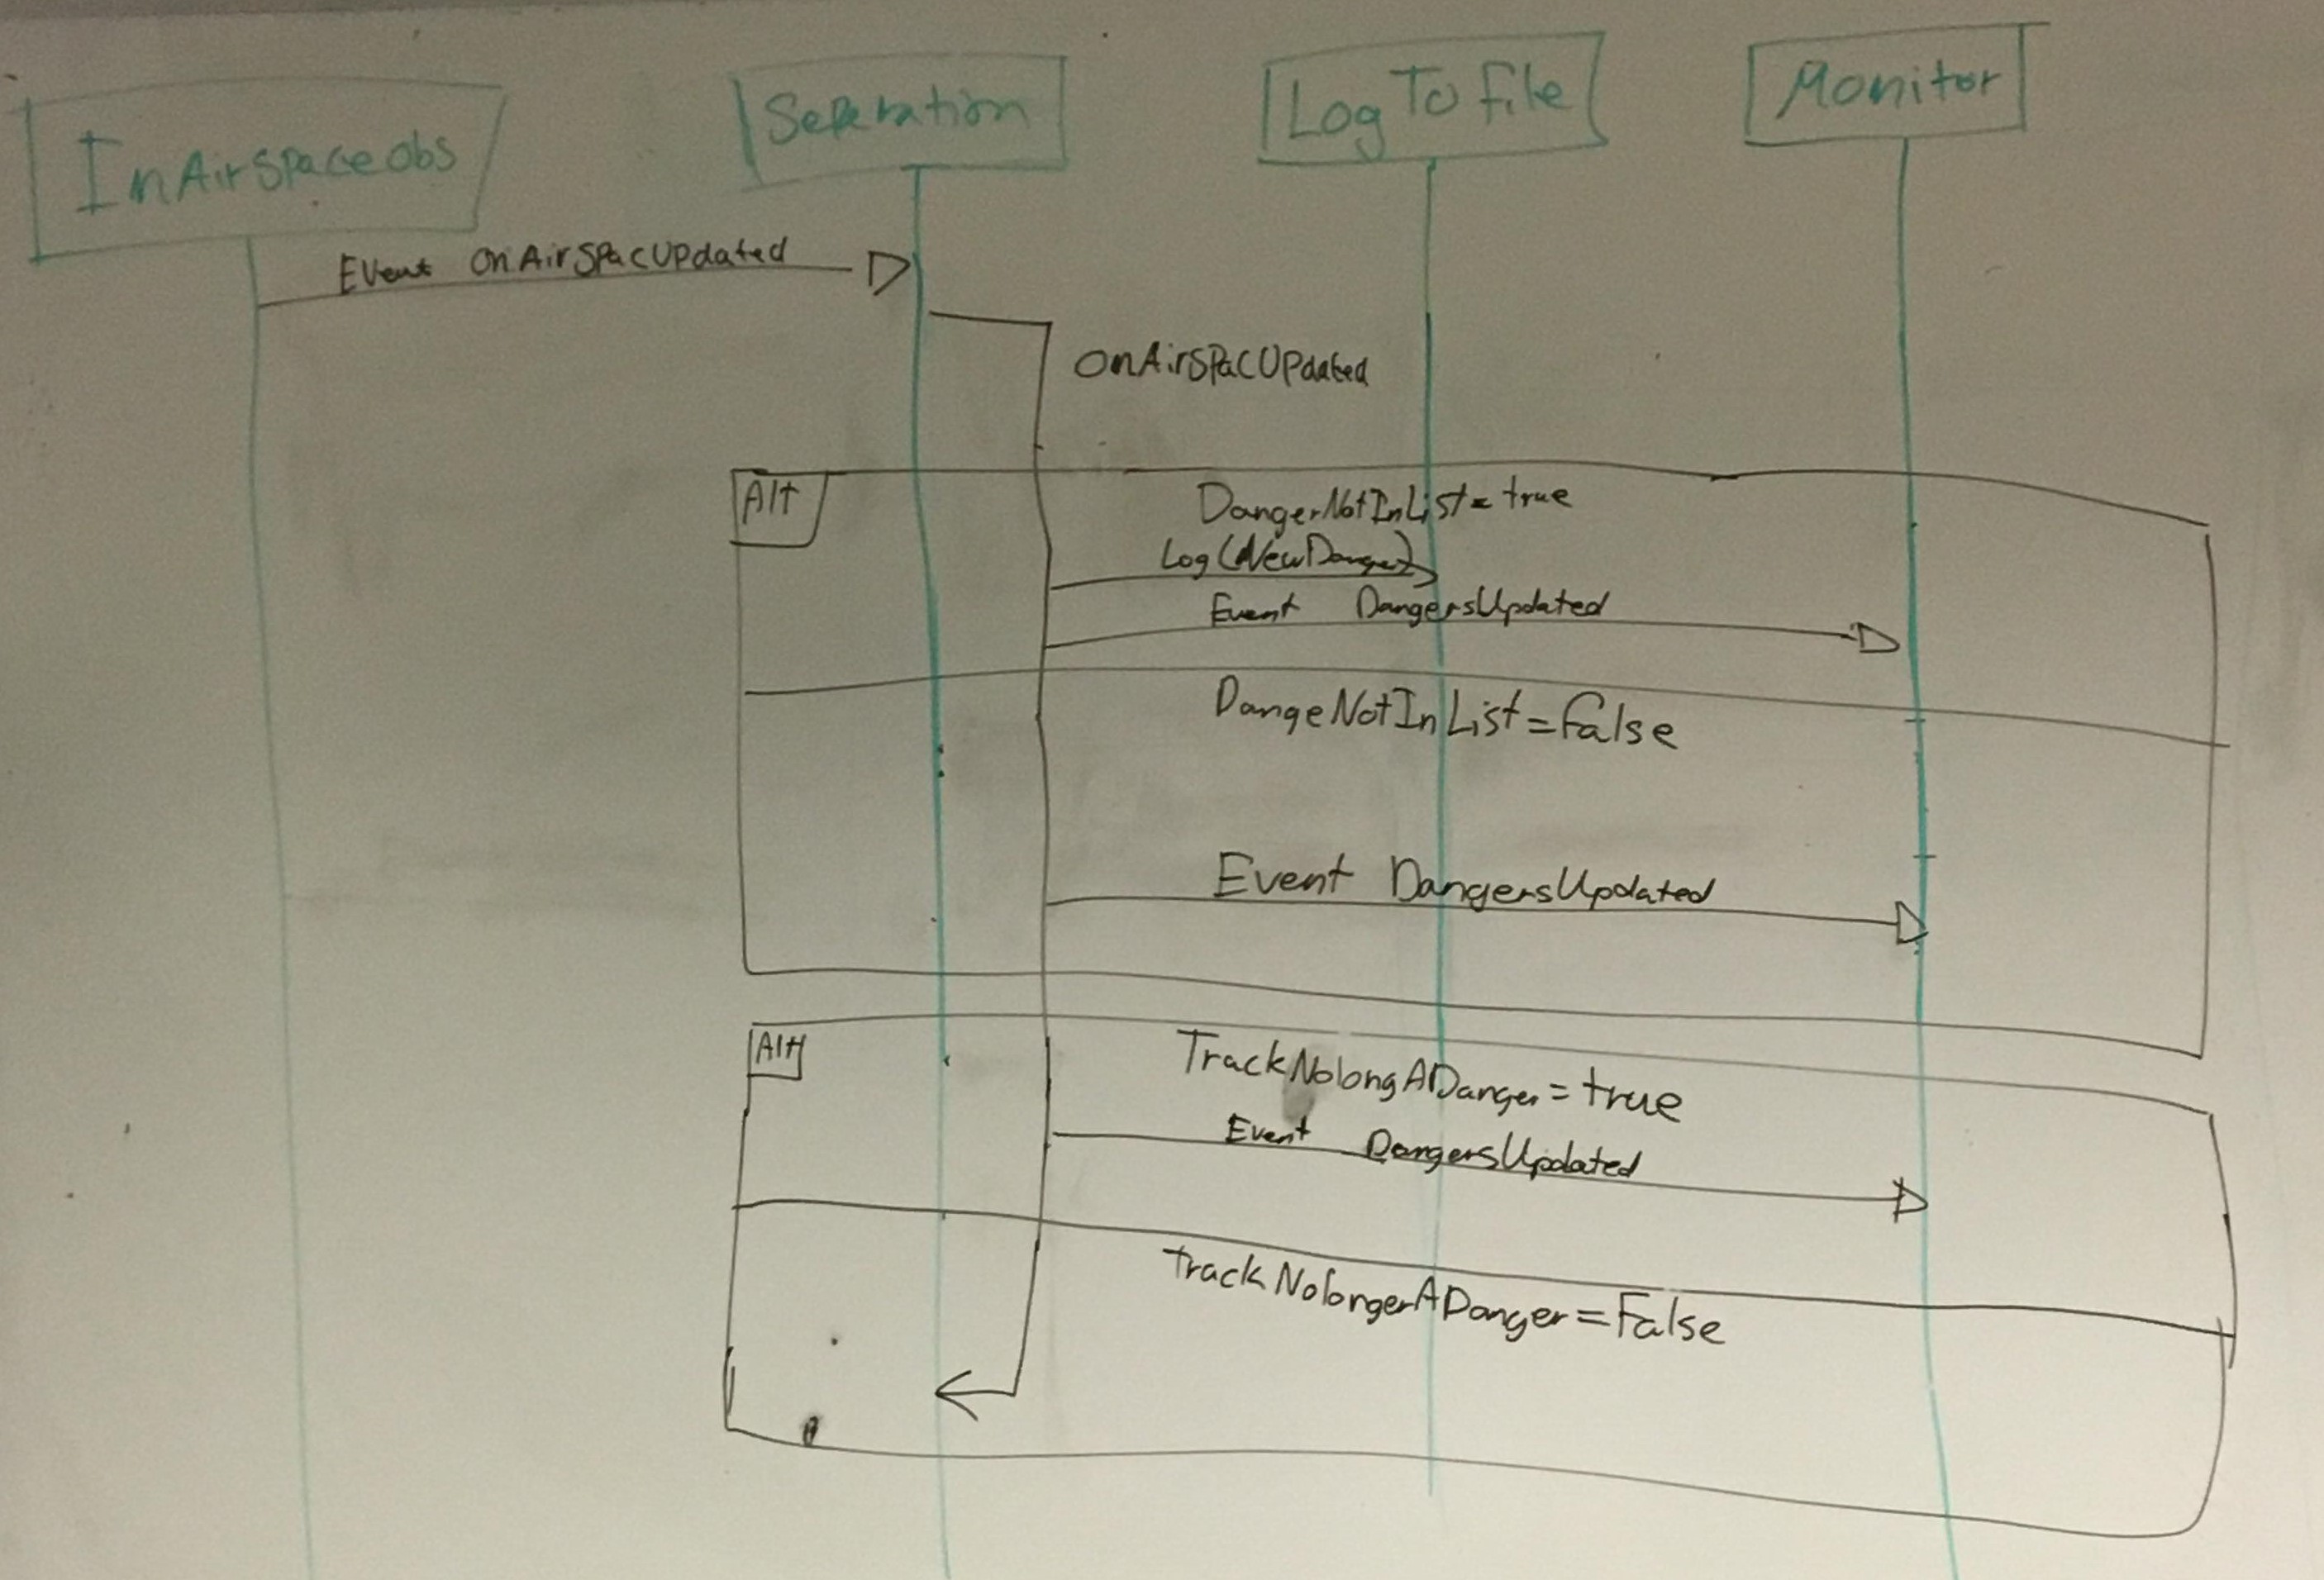 InAirSpaceObs
Seperation
LogToFile
Monitor
Event OnAirSpacUpdated
OnAirSpacUpdated
Alt
DangerNotInList = true
Log(NewDanger)
Event DangersUpdated
DangeNotInList = false
Event DangersUpdated
Alt
TrackNolongADanger = true
Event DangersUpdated
TrackNolongerADanger = False